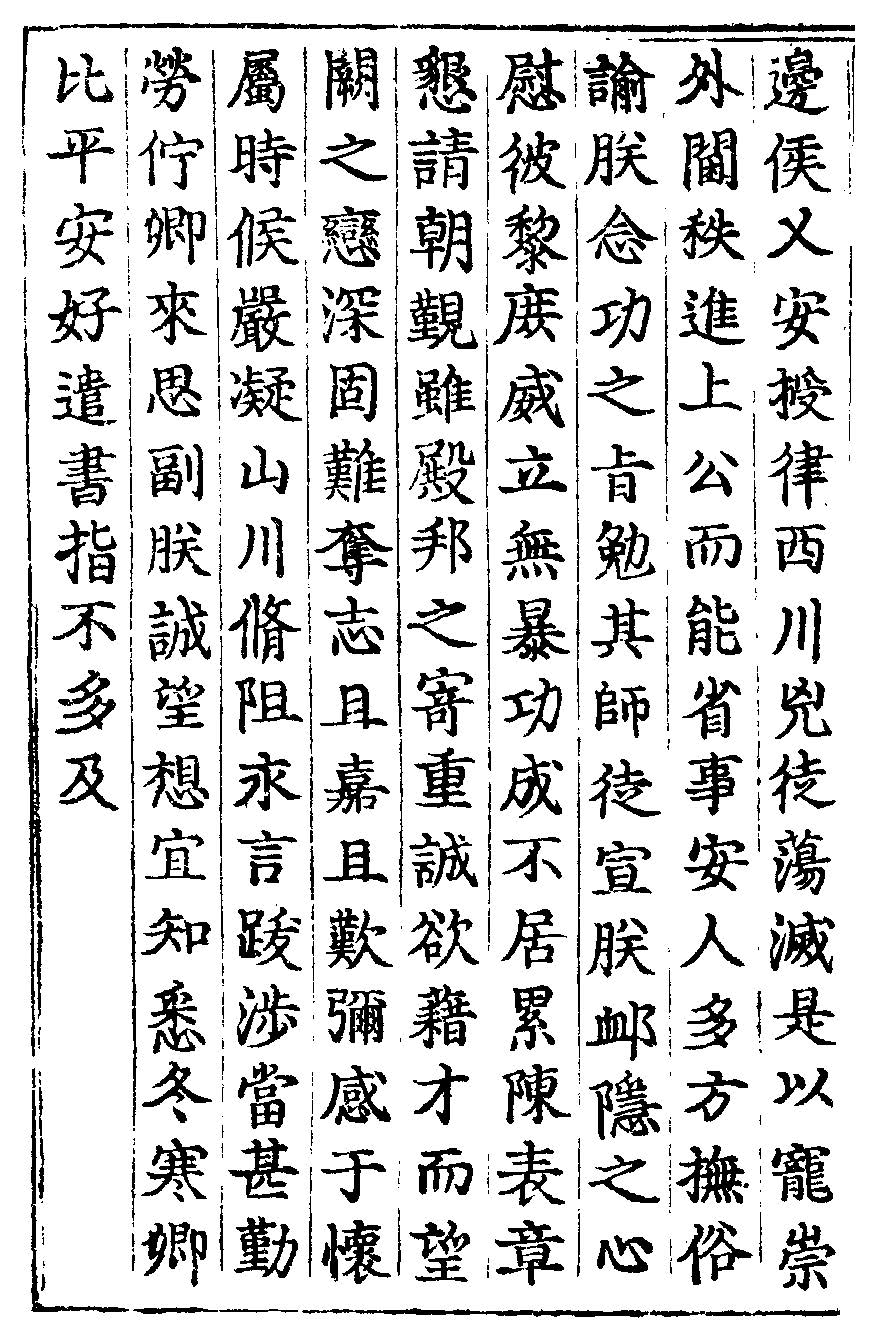 邊侯乂安授律西川兇徒蕩滅是以寵崇
外閫秩進上公而能省事安人多方撫俗
諭朕念功之旨勉其師徒宣朕卹隱之心
慰彼黎庶威立無暴功成不居累陳表章
懇請朝覲雖殿邦之寄重誠欲藉才而望
闕之戀深固難奪志且嘉且歎彌感于懷
屬時候嚴凝山川脩阻永言跋涉當甚勤
勞佇卿來思副朕誠望想宜知悉冬寒卿
比平安好遣書指不多及